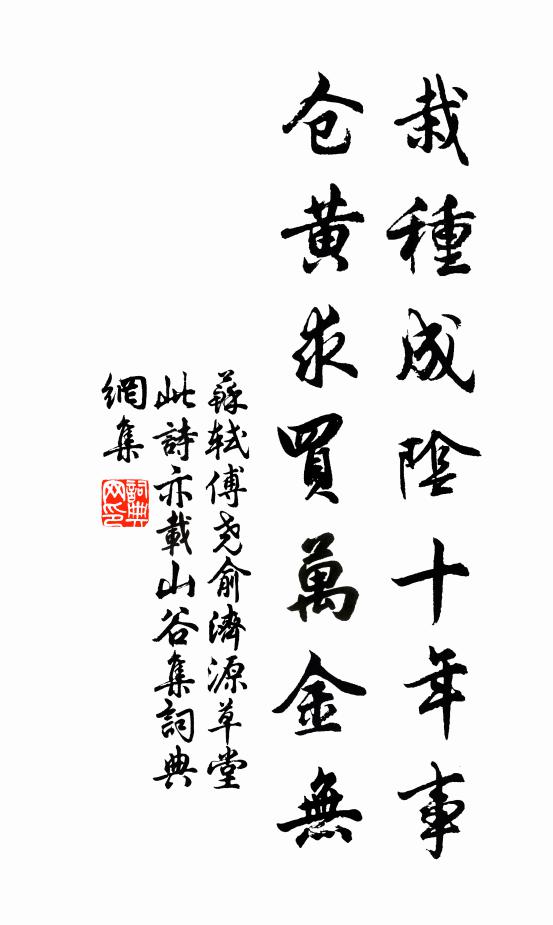 栽種成陰十年事
仓黄求買萬金無
蘇軾傅尧俞濟源草堂
此詩亦載山谷集詞典
網集
詞典
网印